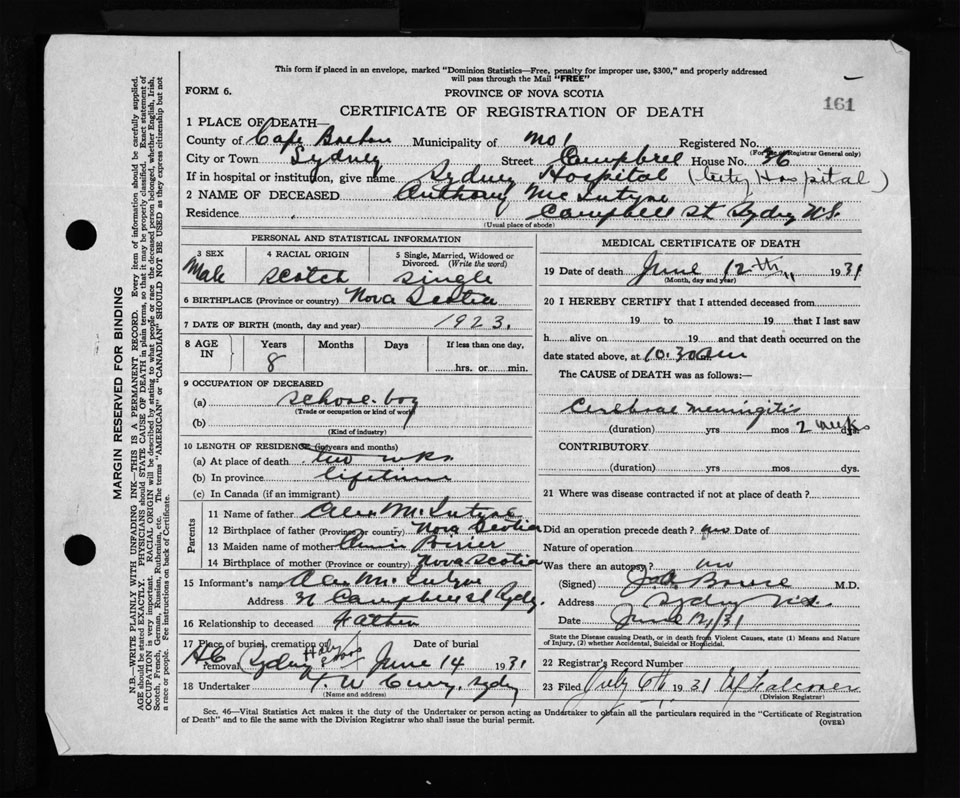 This form if placed in an envelope, marked "Dominion Statistics—Free, penalty for improper use, $300," and properly addressed
will pass through the Mail "FREE"
FORM 6.
PROVINCE OF NOVA SCOTIA
161
CERTIFICATE OF REGISTRATION OF DEATH
1 PLACE OF DEATH—
County of Cape Breton Municipality of Registered No.
(For use of Registrar General only)
City or Town Sydney Street Campbell House No. 36
If in hospital or institution, give name Sydney Hospital (City Hospital)
2 NAME OF DECEASED Anthony McIntyre
Residence Campbell St Sydney N.S.
(Usual place of abode)
PERSONAL AND STATISTICAL INFORMATION
3 SEX 4 RACIAL ORIGIN 5 Single, Married, Widowed or
Divorced. (Write the word)
Male Scotch Single
6 BIRTHPLACE (Province or country) Nova Scotia
7 DATE OF BIRTH (month, day and year) 1923.
8 AGE IN Years Months Days If less than one day,
8 hrs. or min.
9 OCCUPATION OF DECEASED
(a) School-boy
(Trade or occupation or kind of work)
(b)
(Kind of industry)
10 LENGTH OF RESIDENCE (in years and months)
(a) At place of death two wks.
(b) In province lifetime
(c) In Canada (if an immigrant)
Parents
11 Name of father Alex McIntyre
12 Birthplace of father (Province or country) Nova Scotia
13 Maiden name of mother Annie
14 Birthplace of mother (Province or country) Nova Scotia
15 Informant's name Alex McIntyre
Address Campbell St Sydney.
16 Relationship to deceased Father
17 Place of burial, cremation or removal Date of burial
Sydney Holy Cross June 14 1931
18 Undertaker T. W. Curry, Sydney
(Name and address)
MEDICAL CERTIFICATE OF DEATH
19 Date of death June 12th, 1931
(Month, day and year)
20 I HEREBY CERTIFY that I attended deceased from
19 to 19 that I last saw
h alive on 19 and that death occurred on the
date stated above, at 10.30 am
The CAUSE of DEATH was as follows:—
Cerebral Meningitis
(duration) yrs mos 2 weeks dys.
CONTRIBUTORY
(duration) yrs mos dys.
21 Where was disease contracted if not at place of death?
Did an operation precede death? no Date of
Nature of operation
Was there an autopsy? no
(Signed) M.D.
Address Sydney N.S.
Date June 12/31
State the Disease causing Death, or in death from Violent Causes, state (1) Means and Nature
of Injury, (2) whether Accidental, Suicidal or Homicidal.
22 Registrar's Record Number
23 Filed July 6th 1931
(Division Registrar)
Sec. 46—Vital Statistics Act makes it the duty of the Undertaker or person acting as Undertaker to obtain all the particulars required in the "Certificate of Registration
of Death" and to file the same with the Division Registrar who shall issue the burial permit.
(OVER)
MARGIN RESERVED FOR BINDING
N.B.—WRITE PLAINLY WITH UNFADING INK—THIS IS A PERMANENT RECORD. Every item of information should be carefully supplied.
AGE should be stated EXACTLY. PHYSICIANS should STATE CAUSE OF DEATH in plain terms, so that it may be properly classified. Exact statement of
OCCUPATION is very important. RACIAL ORIGIN will be described by stating to what people or race the deceased person belonged, whether English, Irish,
Scotch, French, German, Russian, Ruthenian, etc. The terms "AMERICAN" or "CANADIAN" SHOULD NOT BE USED as they express citizenship but not
a race or people. See instructions on back of Certificate.